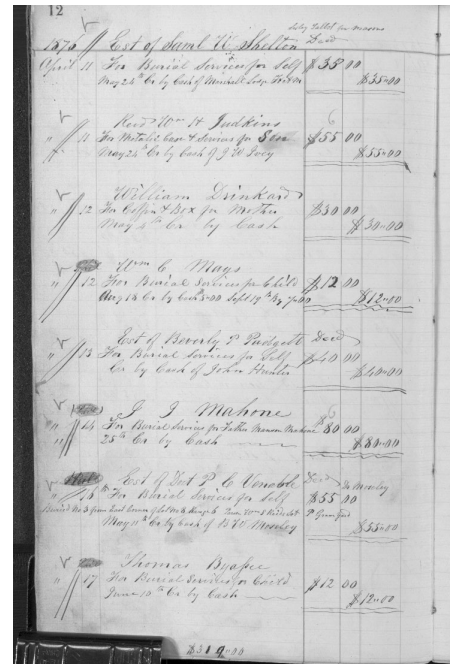 12
1876 Est of Saml W. Shelton Decd
April 11 For Burial Services for Self $35 00
May 24th Cr by Cash of Marshall Lodge $35=00
Revd Wm H Judkins
" 11 For Metalic Case & Services for Son $55 00
May 24th Cr by Cash of J W Ivey $55=00
William Drinkard
" 12 For Coffin & Box for Mother $30 00
May 4th Cr by Cash $30=00
Wm C Mays
" 12 For Burial Services for Child $12 00
Aug 18 Cr by Cash 5=00 Sept 19th By 7=00 $12=00
Est of Beverly P Padgett Decd
" 13 For Burial Services for Self $40 00
Cr by Cash of John Hunter $40=00
J J Mahone
" 14 For Burial Services for Father Manson Mahone $80 00
" 25th Cr by Cash $80=00
Est of P C Venable Decd
" 16th For Burial Services for Self $55 00
Buried No 3 from East corner of Lot No Range 6
May 11th Cr by Cash of B W Mosely $55=00
Thomas
" 17 For Burial Services for Child $12 00
June 10th Cr by Cash $12=00
$319=00